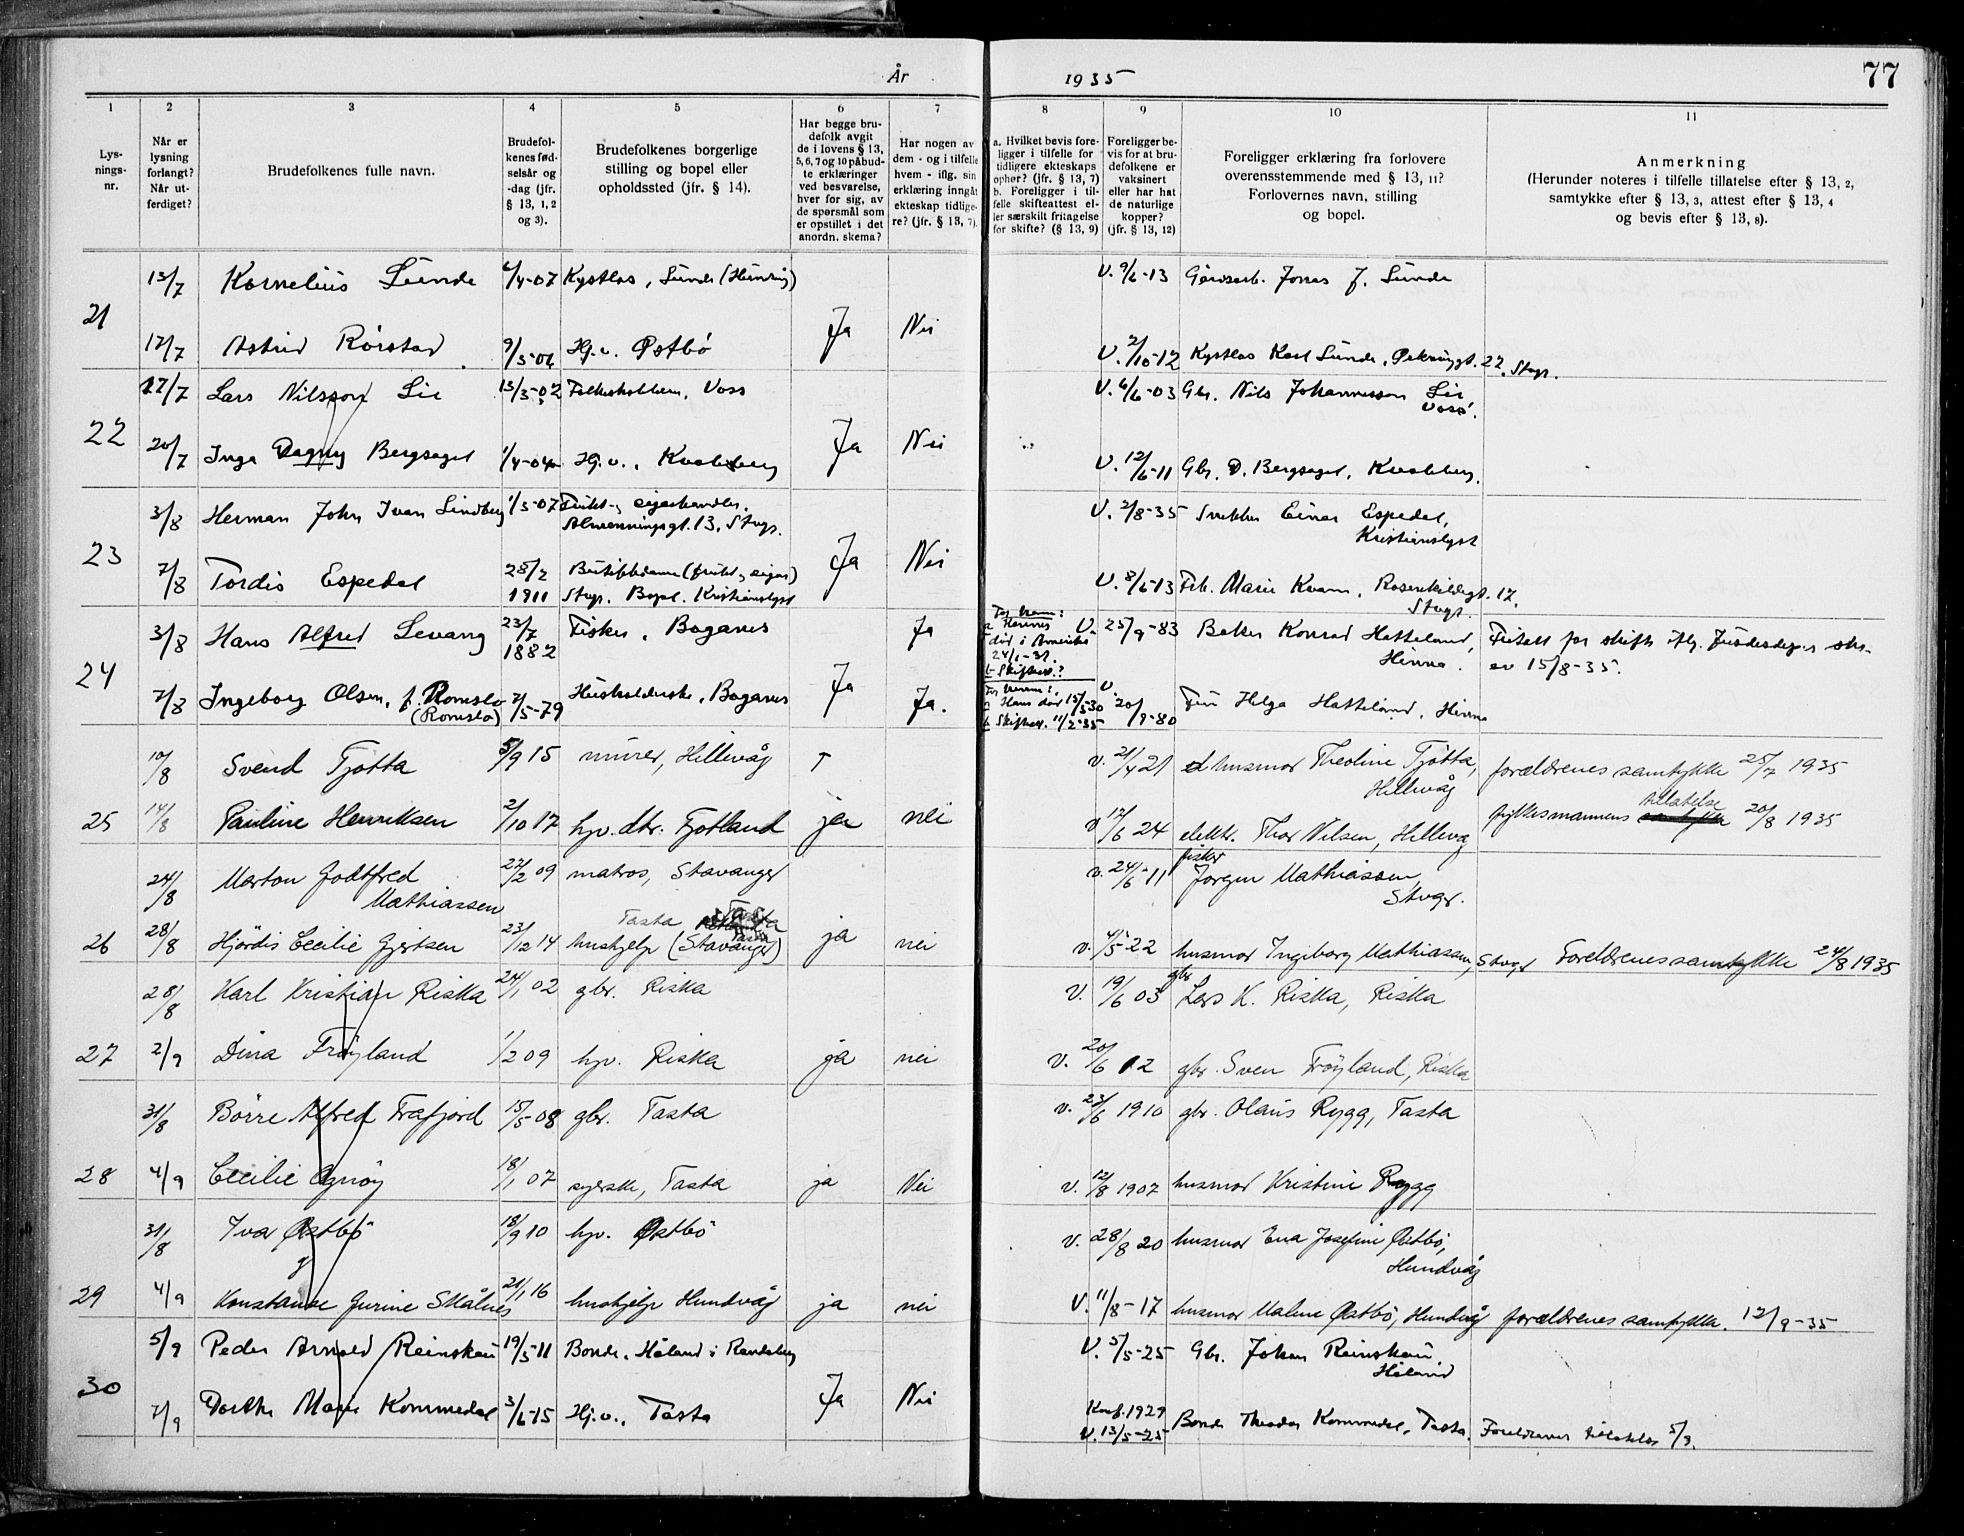 År 1935
77
1 2 3 4 5 6 7 8 9 10 11
Lys-
nings-
nr.
Når er
lysning
forlangt?
Når ut-
ferdiget?
Brudefolkenes fulle navn.
Brudefol-
kenes fød-
selsår og
-dag (jfr.
§ 13, 1, 2
og 3).
Brudefolkenes borgerlige
stilling og bopel eller
opholdssted (jfr. § 14).
Har begge bru-
defolk avgit
de i lovens § 13,
5, 6, 7 og 10 påbud-
te erklæringer
ved besvarelse,
hver for sig, av
de spørsmål som
er opstillet i det
anordn. skema?
Har nogen av
dem - og i tilfelle
hvem - iflg. sin
erklæring inngått
ekteskap tidlige-
re? (jfr. § 13, 7).
a. Hvilket bevis fore-
ligger i tilfelle for
tidligere ekteskaps
ophør? (jfr. § 13, 7)
b. Foreligger i til-
felle skifteattest el-
ler særskilt fritagelse
for skifte? (§ 13, 9)
Foreligger be-
vis for at bru-
defolkene er
vaksinert
eller har hat
de naturlige
kopper?
(jfr. § 13, 12)
Foreligger erklæring fra forlovere
overensstemmende med § 13, 11?
Forlovernes navn, stilling
og bopel.
Anmerkning
(Herunder noteres i tilfelle tillatelse efter § 13, 2,
samtykke efter § 13, 3, attest efter § 13, 4
og bevis efter § 13, 8).
13/7 Kornelius Sunde 6/4-07 Kystlos, Sunde (Hundvåg) V. 9/6-13 Gårdsarb. Jonas J. Sunde
21 Ja Nei
17/7 Astrid Rörstad 9/3-06 Hj.v. Østbö V. 2/10-12 Kystlos Karl Sunde, 22, Stvgr.
17/7 Lars Nilsson Lie 13/3-02 Folkeskolelærer, Voss V. 6/6-03 Gbr. Nils Johannesson Lie
Voss.
22 Ja Nei
20/7 Inga Dagny Bergsagel 1/4-04 Hj.v., Kvaleberg V. 12/6-11 Gbr. D. Bergsagel, Kvaleberg.
3/8 Herman John Ivan Lindberg 1/3-07 Frukt- og sigarhandler,
Almenningsgt. 13, Stvgr. V. 2/8-35 Snekker Einar Espedal,
Kristianslyst
23 Ja Nei
7/8 Tordis Espedal 28/2
1911 Butikkdame (frukt og sigar)
Stvgr. Bopel. Kristianslyst V. 8/6-13 Frk. Marie Kvam, Rosenkildegt. 17.
Stvgr.
3/8 Hans Alfred Levang 23/7
1882 Fisker, Boganes Ja For ham:
a Hennes
död i Amerika
24/1-31.
b Skifteat.? V. 25/9-83 Baker Konrad Hetteland,
Hinna. Fritatt for skifte iflg. Justisdep.s skr.
av 15/8-35.
24 Ja
7/8 Ingeborg Olsen, f. Romslo
(Romslo) 7/5-79 Husholderske, Boganes Ja. For henne:
a Hans död 15/5-30
b Skifteat. 11/2-35 V. 20/9-80 Fru Helga Hatteland, Hinna
10/8 Svend Tjøtta 5/9 15 murer, Hillevåg v. 21/4 21 husmor Theoline Tjøtta,
Hillevåg forældrenes samtykke 25/7 1935
25 14/8 Pauline Henriksen 2/10 17 hjv. dtr. Tjøtland ja nei v 17/6 24 elektr. Thor Nilsen, Hillevåg fylkesmannens tillatelse 20/8 1935
24/8 Marton Godtfred
Mathiassen 27/2 09 matros, Stavanger v. 24/6-11 fisker
Jørgen Mathiassen,
Stvgr.
26 28/8 Hjördis Cecilie Gjertsen 23/12 14 Tasta
hushjelp (Stavanger) ja nei v. 4/5-22 husmor Ingeborg Mathiassen, Stvgr Forældrenes samtykke 24/8 1935
28/8 Karl Kristian Riska 24/1 02 gbr. Riska V. 19/6 03 gbr
Lars K. Riska, Riska
27 2/9 Dina Frøyland 1/2 09 hjv. Riska ja nei v. 20/6 12 gbr. Sven Frøyland, Riska
31/8 Börre Alfred Frafjord 15/5-08 gbr. Tasta v. 23/6 1910 gbr. Olaus Rygg, Tasta
28 4/9 Cecilie Ognøy 18/1 07 syerske, Tasta ja Nei v. 12/8 1907 husmor Kristine Rygg
31/8 Ivar Østbö 18/9 10 hjv. Østbö v. 28/8 20 husmor Ena Josefine Østbö,
Hundvåg
29 4/9 Konstanse Gurine Skålnes 21/1 16 hushjelp Hundvåg ja nei V. 11/8-17 husmor Maline Østbö, Hundvåg forældrenes samtykke. 12/9-35
5/9 Peder Arnold Reinskau 19/5-11 Bonde, Håland i Randaberg V. 5/5-25 Gbr. Johan Reinskau,
Håland
30 Ja Nei
7/9 Dorthe Marie Kommedal 3/6-15 Hj.v., Tasta Konf. 1929
V. 13/5-25 Bonde Theodor Kommedal, Tasta. Foreldrenes tillatelse 5/9.